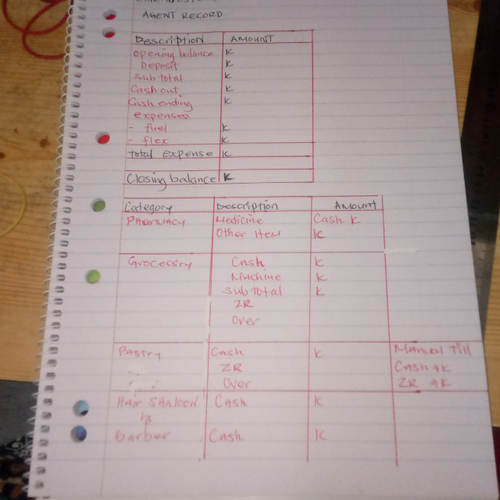 AGENT RECORD
Description AMOUNT
opening balance K
Deposit K
Sub total K
Cash out K
Cash ending K
expenses
- fuel K
- flex K
Total expense K
Closing balance K
Category Description Amount
PHARMACY Medicine Cash K
Other Item K
GROCESSRY Cash K
Machine K
Sub Total K
ZR
Over
Pastry Cash K Manual Till
ZR Cash → K
Over ZR → K
HAIR SHALOON Cash K
&
Barber Cash K